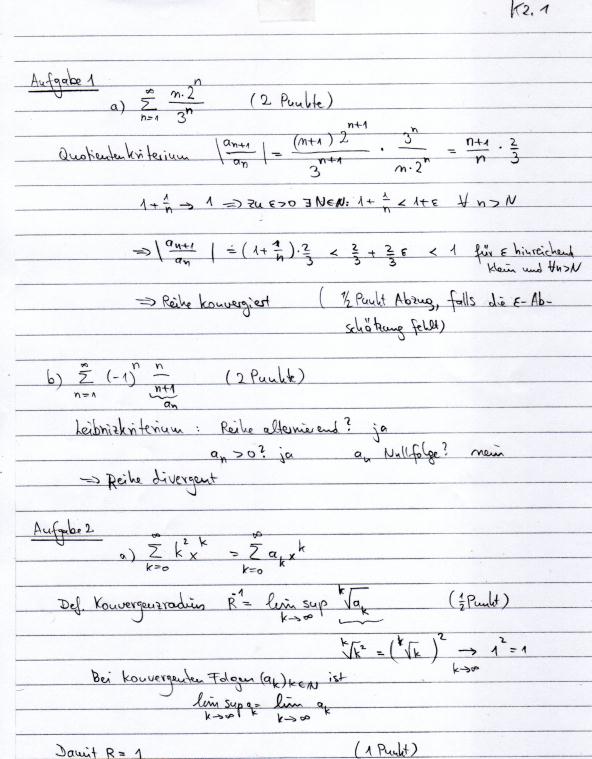 K2.1
Aufgabe 1
a) ∑_{n=1}^{∞} n·2^n / 3^n (2 Punkte)
Quotientenkriterium |a_{n+1}/a_n| = (n+1) 2^{n+1} / 3^{n+1} · 3^n / n·2^n = n+1/n · 2/3
1 + 1/n → 1 ⇒ zu ε>0 ∃ N∈ℕ: 1 + 1/n < 1+ε ∀ n > N
⇒ |a_{n+1}/a_n| = (1 + 1/n) · 2/3 < 2/3 + 2/3 ε < 1 für ε hinreichend
klein und ∀n>N
⇒ Reihe konvergiert ( 1/2 Punkt Abzug, falls die ε-Ab-
schätzung fehlt)
b) ∑_{n=1}^{∞} (-1)^n n/n+1 (2 Punkte)
a_n
Leibnizkriterium : Reihe alternierend? ja
a_n > 0? ja a_n Nullfolge? nein
⇒ Reihe divergent
Aufgabe 2
a) ∑_{k=0}^{∞} k^2 x^k = ∑_{k=0}^{∞} a_k x^k
Def. Konvergenzradius R^{-1} = lim sup_{k→∞} ᵏ√a_k (1/2 Punkt)
ᵏ√k^2 = (ᵏ√k)^2 →_{k→∞} 1^2 = 1
Bei konvergenten Folgen (a_k)_{k∈ℕ} ist
lim sup_{k→∞} a_k = lim_{k→∞} a_k
Damit R = 1 (1 Punkt)